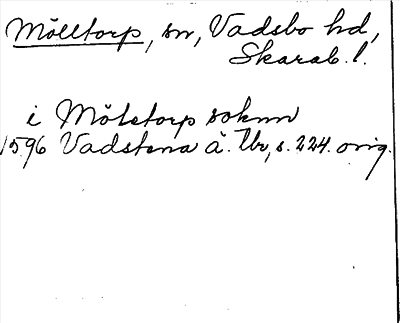 Mölltorp, sn, Vadsbo hd,
Skarab. l.
i Möletorp soknn
1596 Vadstena ä. tbr, s. 224. orig.